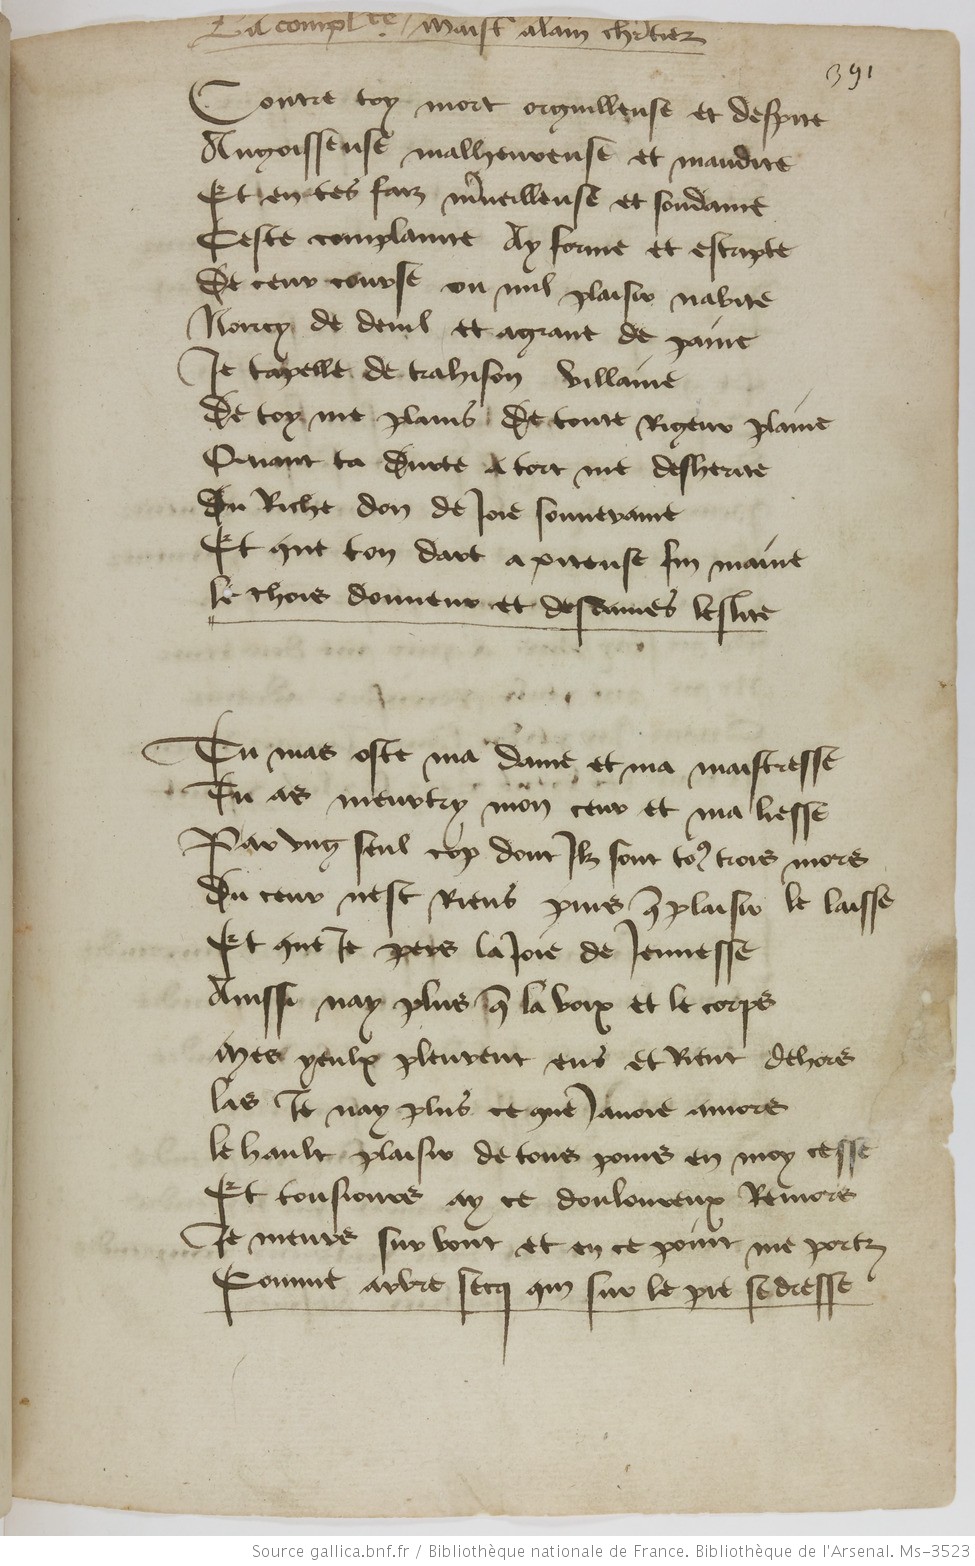 La compl^te / Maist alain chr̄tier
391
Contre toy mort orguilleuse et despite
Angoisseuse malheureuse et maudite
Et en tes faiz m̄veilleuse et soudaine
Ceste complainte Ay forme et escripte
De ceur course ou nul plaisir nabite
Noircy de deuil et agraue de paine
Je tapelle de trahison villaine
De toy me plains De toute Rigeur plaine
Quant ta Durte a tort me desherite
Du Riche don de Joie souueraine
Et que ton dart a piteuse fin maine
Le chois donneur et des dames leslite
Tu mas oste ma dame et ma maistresse
Tu as meurtry mon ceur et ma liesse
Par ung seul cop dont Ilz sont to9 trois mors
Du ceur nest Riens puis q̄ plaisir le laisse
Et que Je pers la Joie de Jeunesse
Aussi nay plus q̄ la voix et le corps
Mes yeulx pleurent ens et Rient dehors
Las Je nay plus ce que Jauoie amors
Le hault plaisir de tous poins en moy cesse
Et tousiours ay ce douloureux Remors
Je meurs sur bout et en ce point me portz
Comme arbre secq qui sur le pie se dresse
Source gallica.bnf.fr / Bibliothèque nationale de France. Bibliothèque de l'Arsenal. Ms-3523